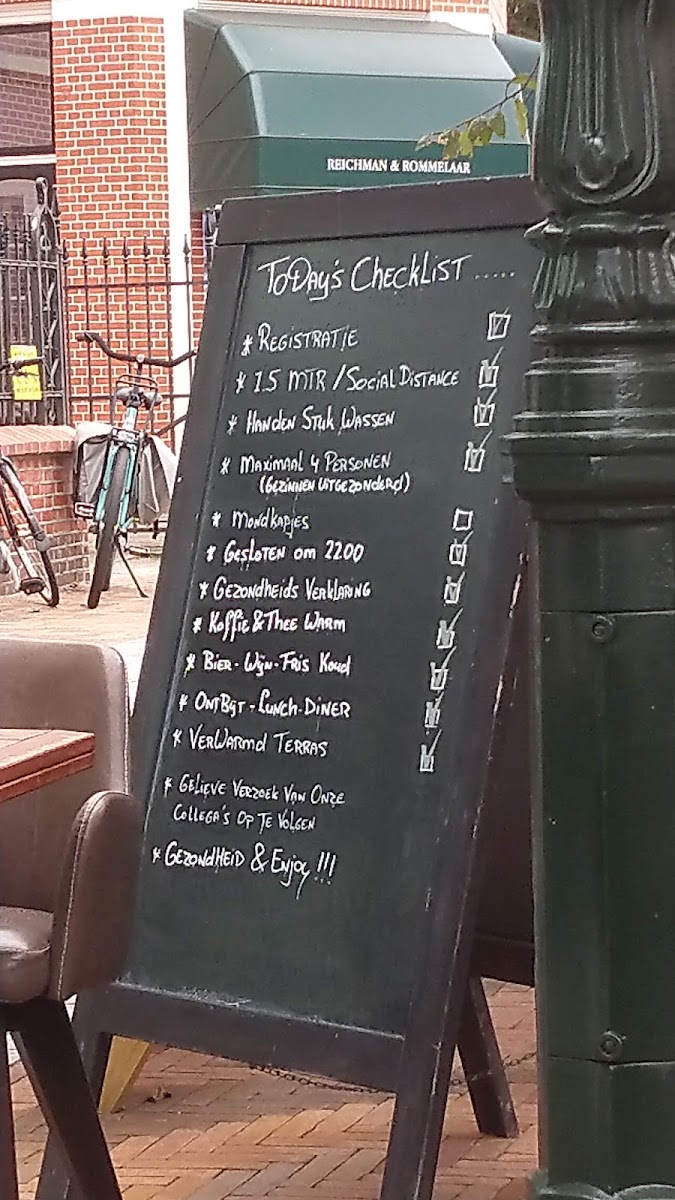 REICHMAN & ROMMELAAR
TODAY'S CHECKLIST .....
* REGISTRATIE
* 1.5 MTR / SOCIAL DISTANCE
* HANDEN STUK WASSEN
* MAXIMAAL 4 PERSONEN
(GEZINNEN UITGEZONDERD)
* MONDKAPJES
* GESLOTEN OM 2200
* GEZONDHEIDS VERKLARING
* KOFFIE & THEE WARM
* BIER - WIJN - FRIS KOUD
* ONTBIJT - LUNCH - DINER
* VERWARMD TERRAS
* GELIEVE VERZOEK VAN ONZE
COLLEGA'S OP TE VOLGEN
* GEZONDHEID & ENJOY !!!